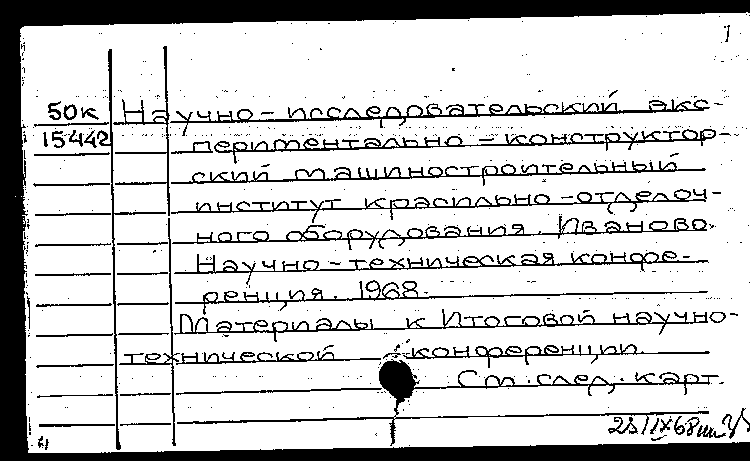 1
50к Научно-исследовательский экс-
15442 периментально-конструктор-
ский машиностроительный
институт красильно-отделоч-
ного оборудования. Иваново.
Научно-техническая конфе-
ренция. 1968.
Материалы к Итоговой научно-
технической конференции.
См. след. карт.